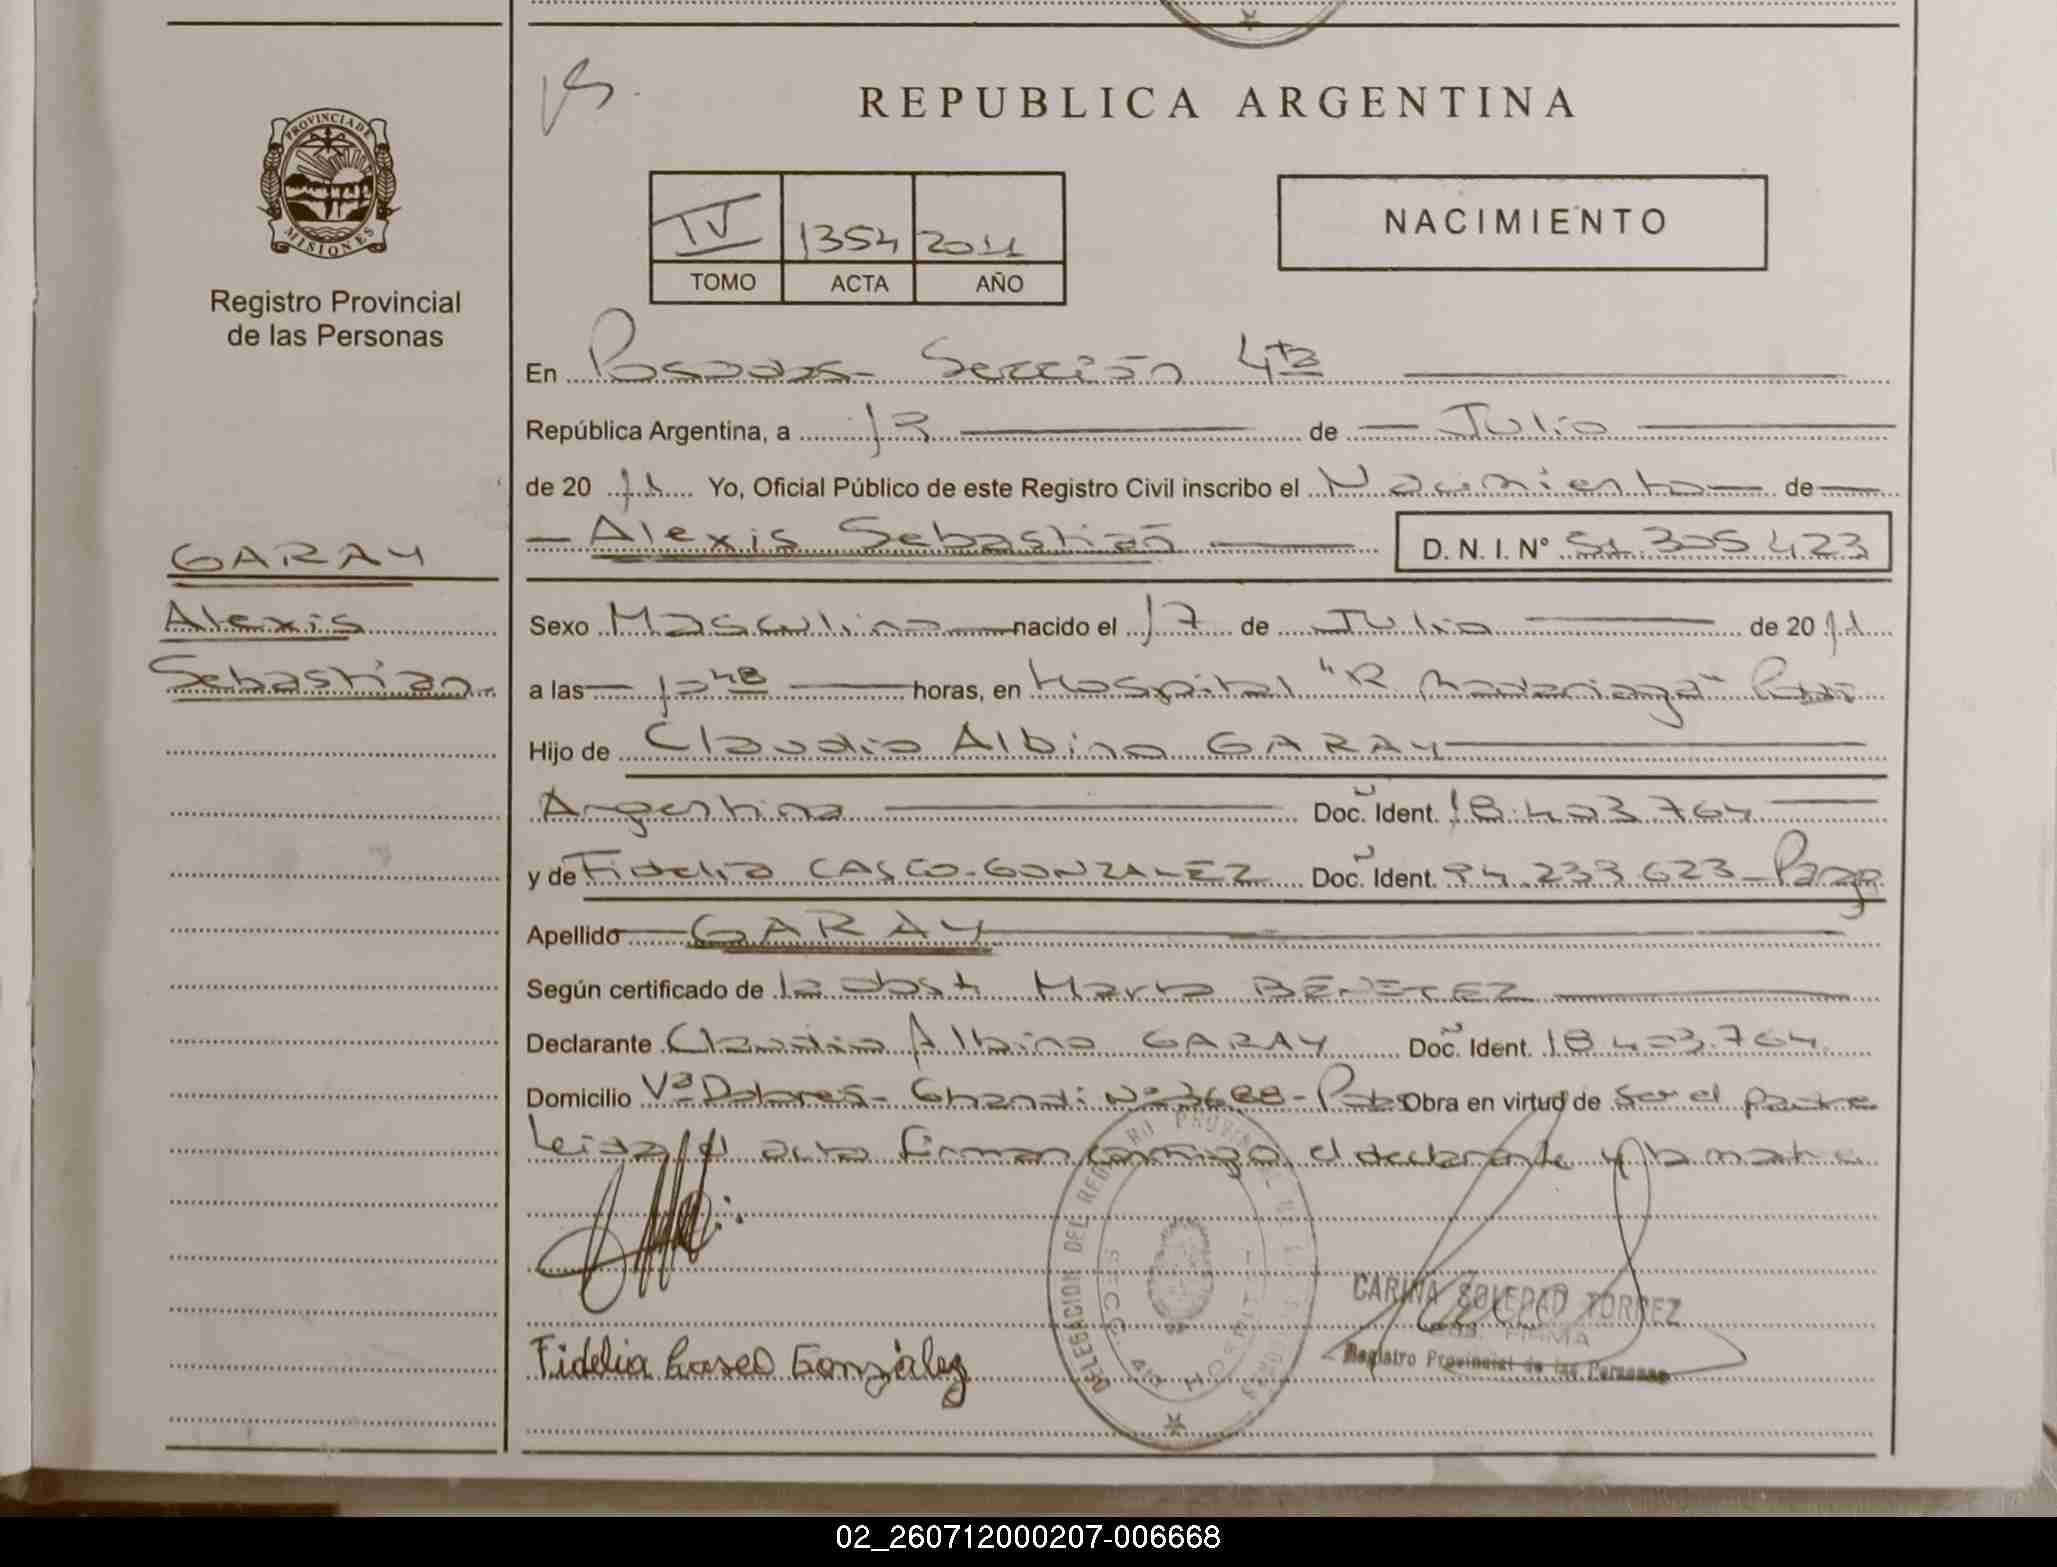 REPUBLICA ARGENTINA
PROVINCIA DE
MISIONES
Registro Provincial
de las Personas
IV 1354 2011
TOMO ACTA AÑO
NACIMIENTO
En Posadas - Sección 4ta
República Argentina, a de Julio
de 20 11 Yo, Oficial Público de este Registro Civil inscribo el Nacimiento de
Alexis Sebastián D. N. I. Nº 51.305.423
GARAY
Alexis
Sebastian.
Sexo Masculino nacido el 17 de Julio de 20 11
a las horas, en Hospital "R. Madariaga"
Hijo de Claudio Albino GARAY
Argentina Doc. Ident. 18.403.764
y de Fidelia CASCO-GONZALEZ Doc. Ident.
Apellido GARAY
Según certificado de la obst. BENITEZ
Declarante Claudio Albino GARAY Doc. Ident. 18.403.764
Domicilio Vª Dolores - Ghandi Nº 3688 - Obra en virtud de ser el padre
Leida el acta firman conmigo el declarante y la madre
Fidelia Casco González
DELEGACION DEL REGISTRO PROVINCIAL DE
SECC. 4ta
CARINA SOLEDAD TORREZ
FIRMA
Registro Provincial de las Personas
02_260712000207-006668